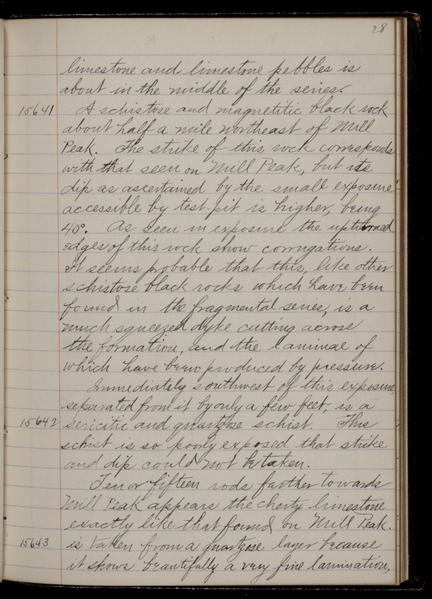 28
limestone and limestone pebbles is
about in the middle of the series.
15641 A schistose and magnetitic black rock
about half a mile northeast of Mill
Peak. The strike of this rock corresponds
with that seen on Mill Peak, but its
dip as ascertained by the small exposure
accessible by test pit is higher, being
40°. As seen in exposure the upturned
edges of this rock show corrugations.
It seems probable that this, like other
schistose black rocks which have been
found in the fragmental series, is a
much squeezed dyke cutting across
the formation, and the laminae of
which have been produced by pressure.
Immediately southwest of this exposure,
separated from it by only a few feet, is a
15642 sericitic and quartzose schist. This
schist is so poorly exposed that strike
and dip could not be taken.
Ten or fifteen rods farther towards
Mill Peak appears the cherty limestone
exactly like that found on Mill Peak.
15643 is taken from a quartzose layer because
it shows beautifully a very fine lamination,